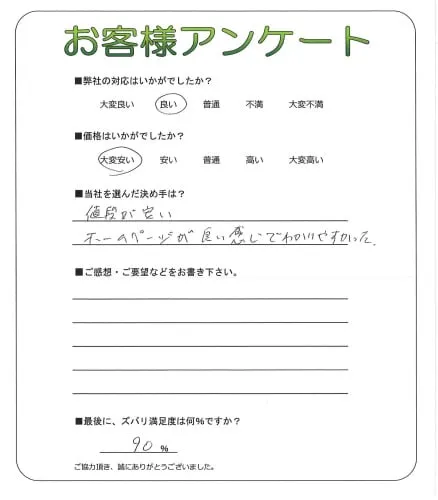 お客様アンケート
■弊社の対応はいかがでしたか？
大変良い　良い　普通　不満　大変不満
■価格はいかがでしたか？
大変安い　安い　普通　高い　大変高い
■当社を選んだ決め手は？
値段が安い
ホームページが良い感じでわかりやすかった。
■ご感想・ご要望などをお書き下さい。
■最後に、ズバリ満足度は何％ですか？
90 %
ご協力頂き、誠にありがとうございました。